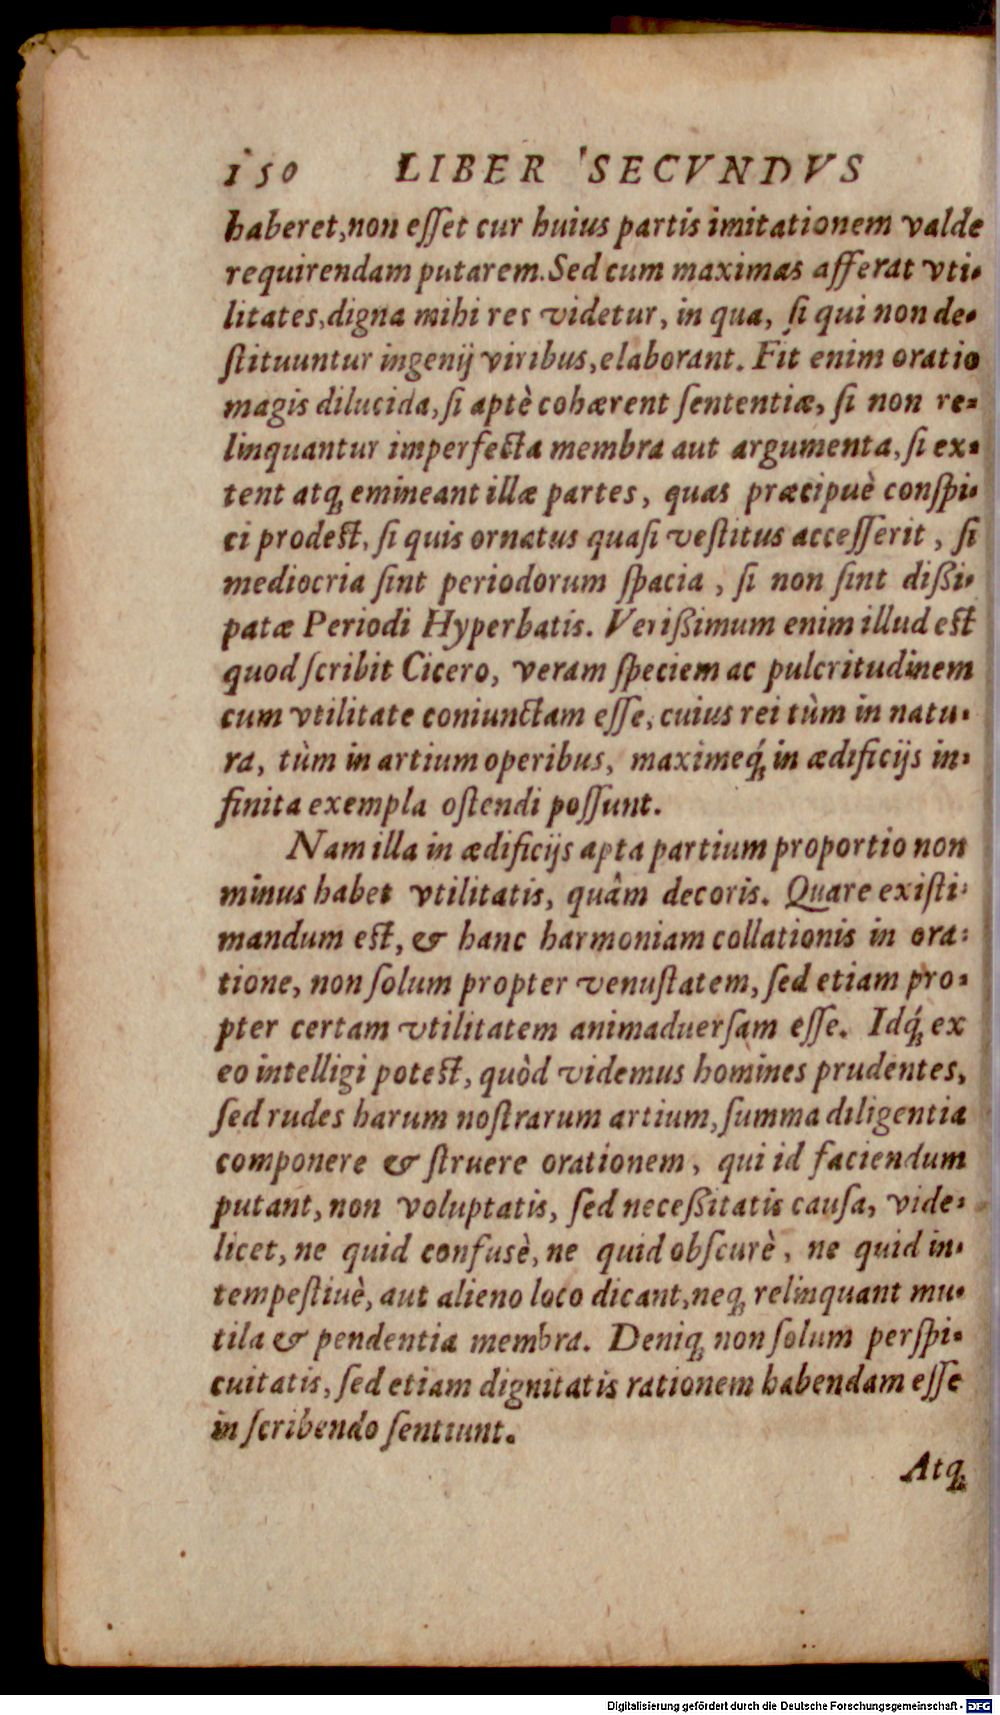 150 LIBER SECVNDVS
haberet, non eſſet cur huius partis imitationem valde
requirendam putarem. Sed cum maximas afferat vti-
litates, digna mihi res videtur, in qua, ſi qui non de-
ſtituuntur ingenij viribus, elaborant. Fit enim oratio
magis dilucida, ſi aptè cohærent ſententiæ, ſi non re-
linquantur imperfecta membra aut argumenta, ſi ex-
tent atq́; emineant illæ partes, quas præcipuè conſpi-
ci prodeſt, ſi quis ornatus quaſi veſtitus acceſſerit, ſi
mediocria ſint periodorum ſpacia, ſi non ſint dißi-
patæ Periodi Hyperbatis. Verißimum enim illud eſt
quod ſcribit Cicero, veram ſpeciem ac pulcritudinem
cum vtilitate coniunctam eſſe, cuius rei tùm in natu-
ra, tùm in artium operibus, maximeq́; in ædificijs in-
finita exempla oſtendi poſſunt.
Nam illa in ædificijs apta partium proportio non
minus habet vtilitatis, quâm decoris. Quare exiſti-
mandum eſt, & hanc harmoniam collationis in ora-
tione, non ſolum propter venuſtatem, ſed etiam pro-
pter certam vtilitatem animaduerſam eſſe. Idq́; ex
eo intelligi poteſt, quòd videmus homines prudentes,
ſed rudes harum noſtrarum artium, ſumma diligentia
componere & ſtruere orationem, qui id faciendum
putant, non voluptatis, ſed neceßitatis cauſa, vide-
licet, ne quid confusè, ne quid obſcurè, ne quid in-
tempeſtiuè, aut alieno loco dicant, neq; relinquant mu-
tila & pendentia membra. Deniq; non ſolum perſpi-
cuitatis, ſed etiam dignitatis rationem habendam eſſe
in ſcribendo ſentiunt.
Atq;
Digitalisierung gefördert durch die Deutsche Forschungsgemeinschaft - DFG